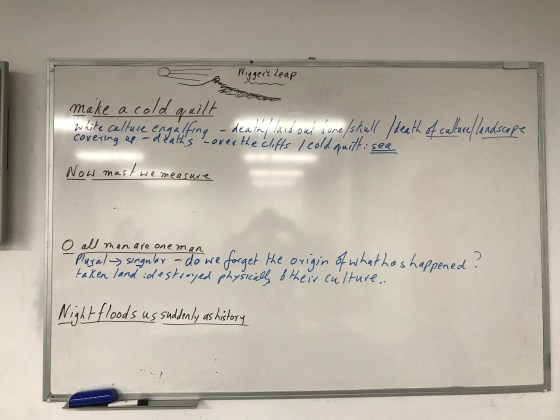 Nigger's Leap
make a cold quilt
white culture engulfing - death/laid out bone/skull /death of culture/landscape
covering up - deaths - over the cliffs / cold quilt: sea
Now must we measure
O all men are one man
Plural → singular - do we forget the origin of what has happened?
taken land: destroyed physically & their culture..
Night floods us suddenly as history